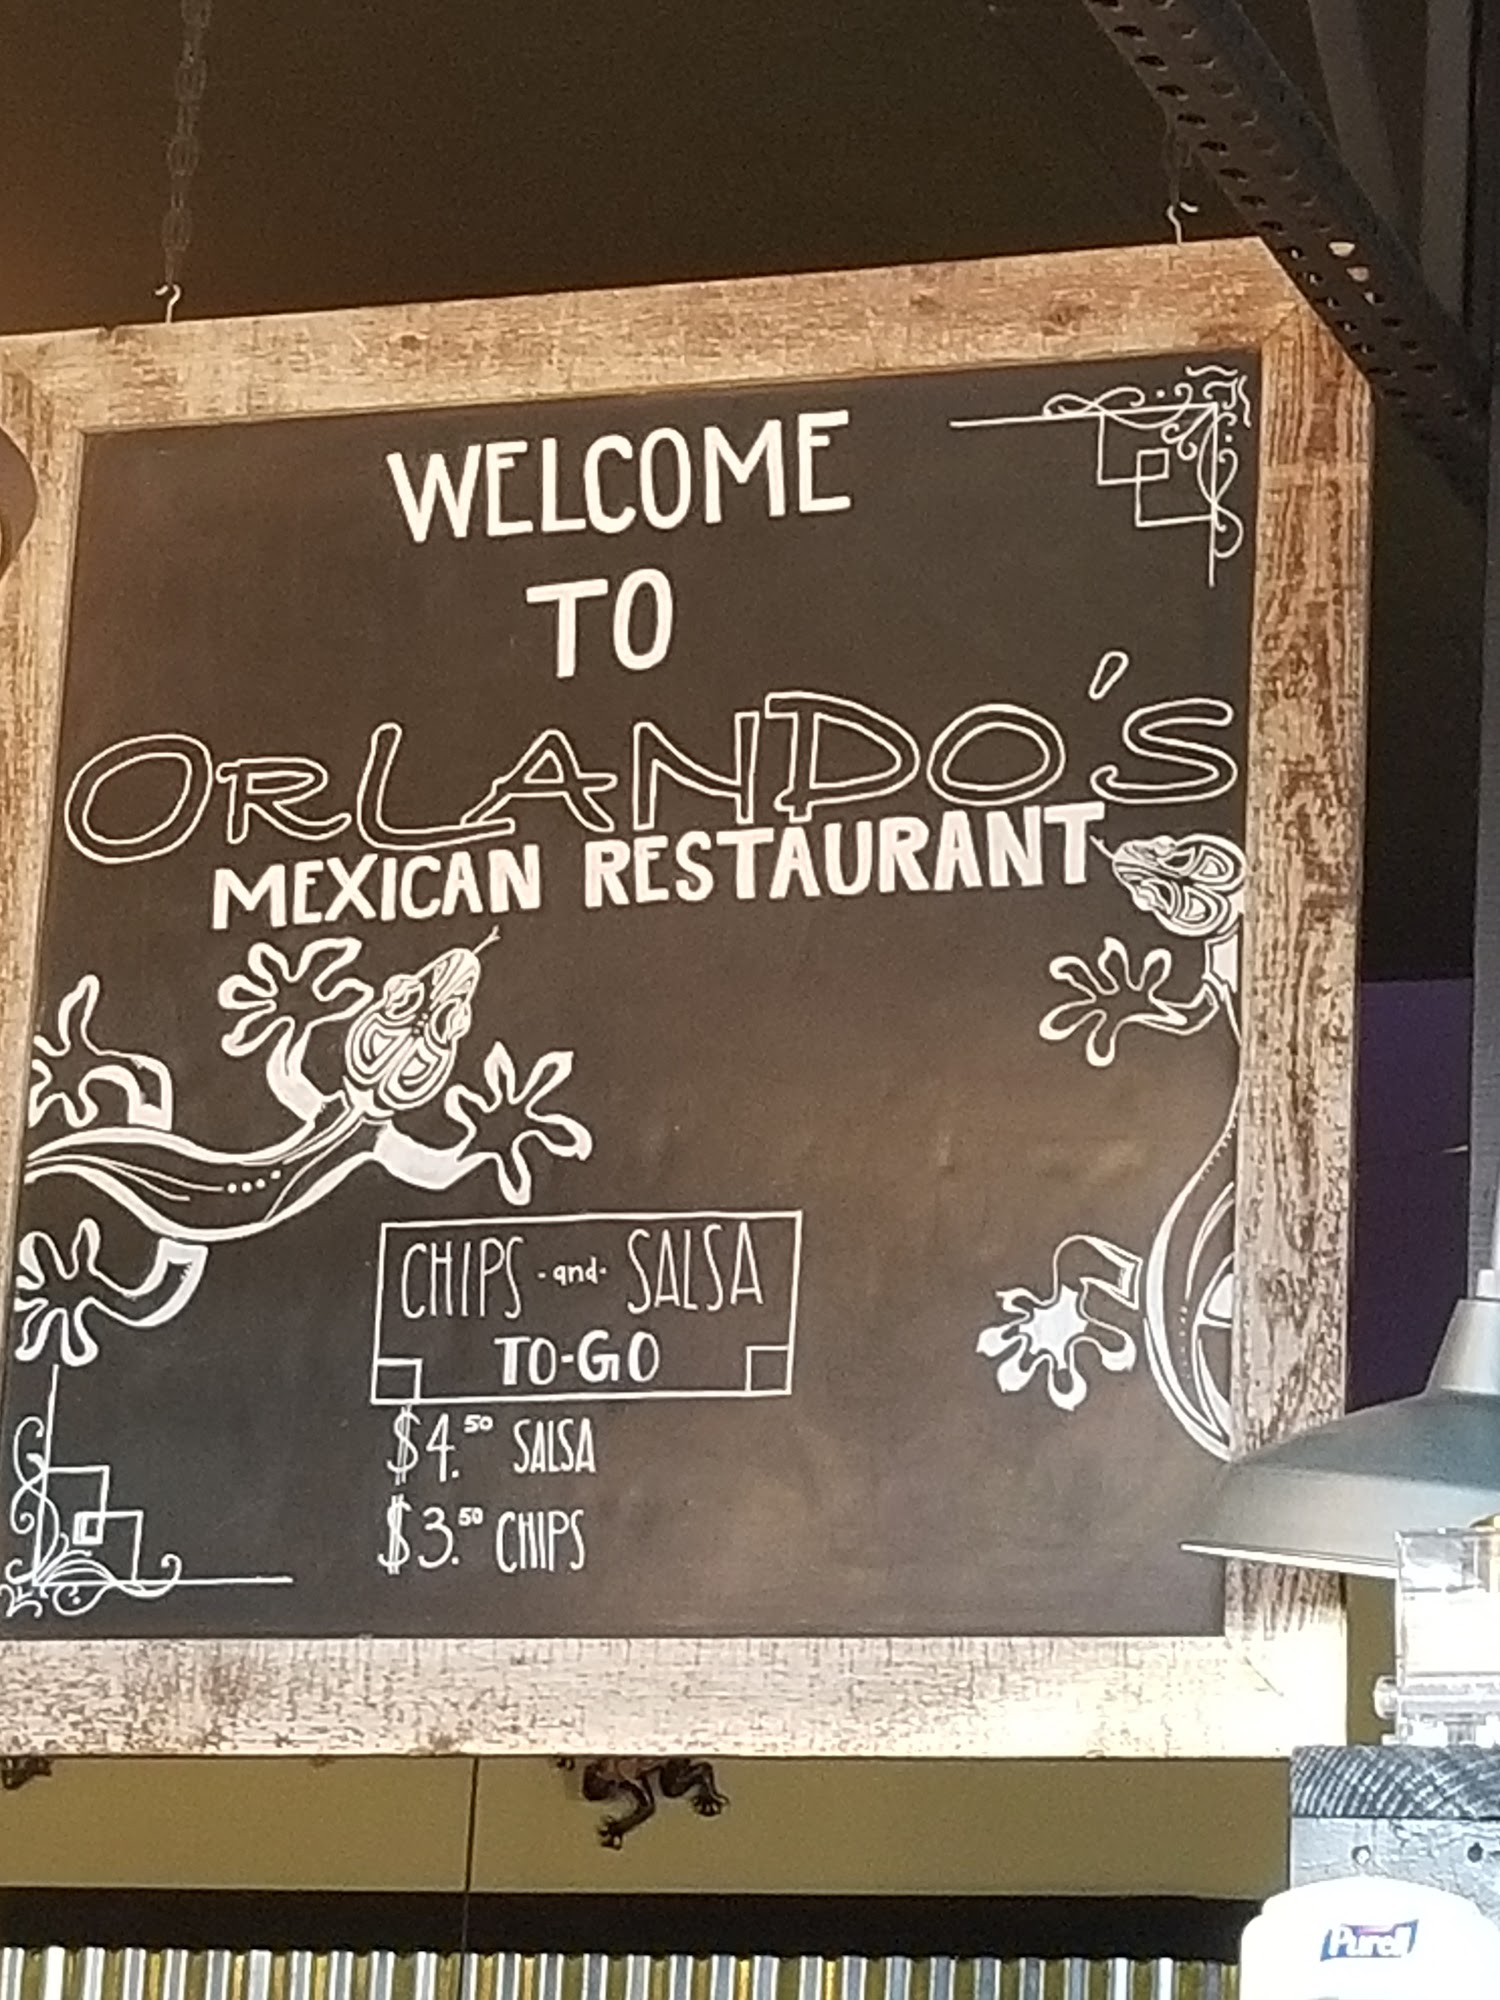 WELCOME
TO
ORLANDO'S
MEXICAN RESTAURANT
CHIPS -and- SALSA
TO-GO
$4.50 SALSA
$3.50 CHIPS
Purell